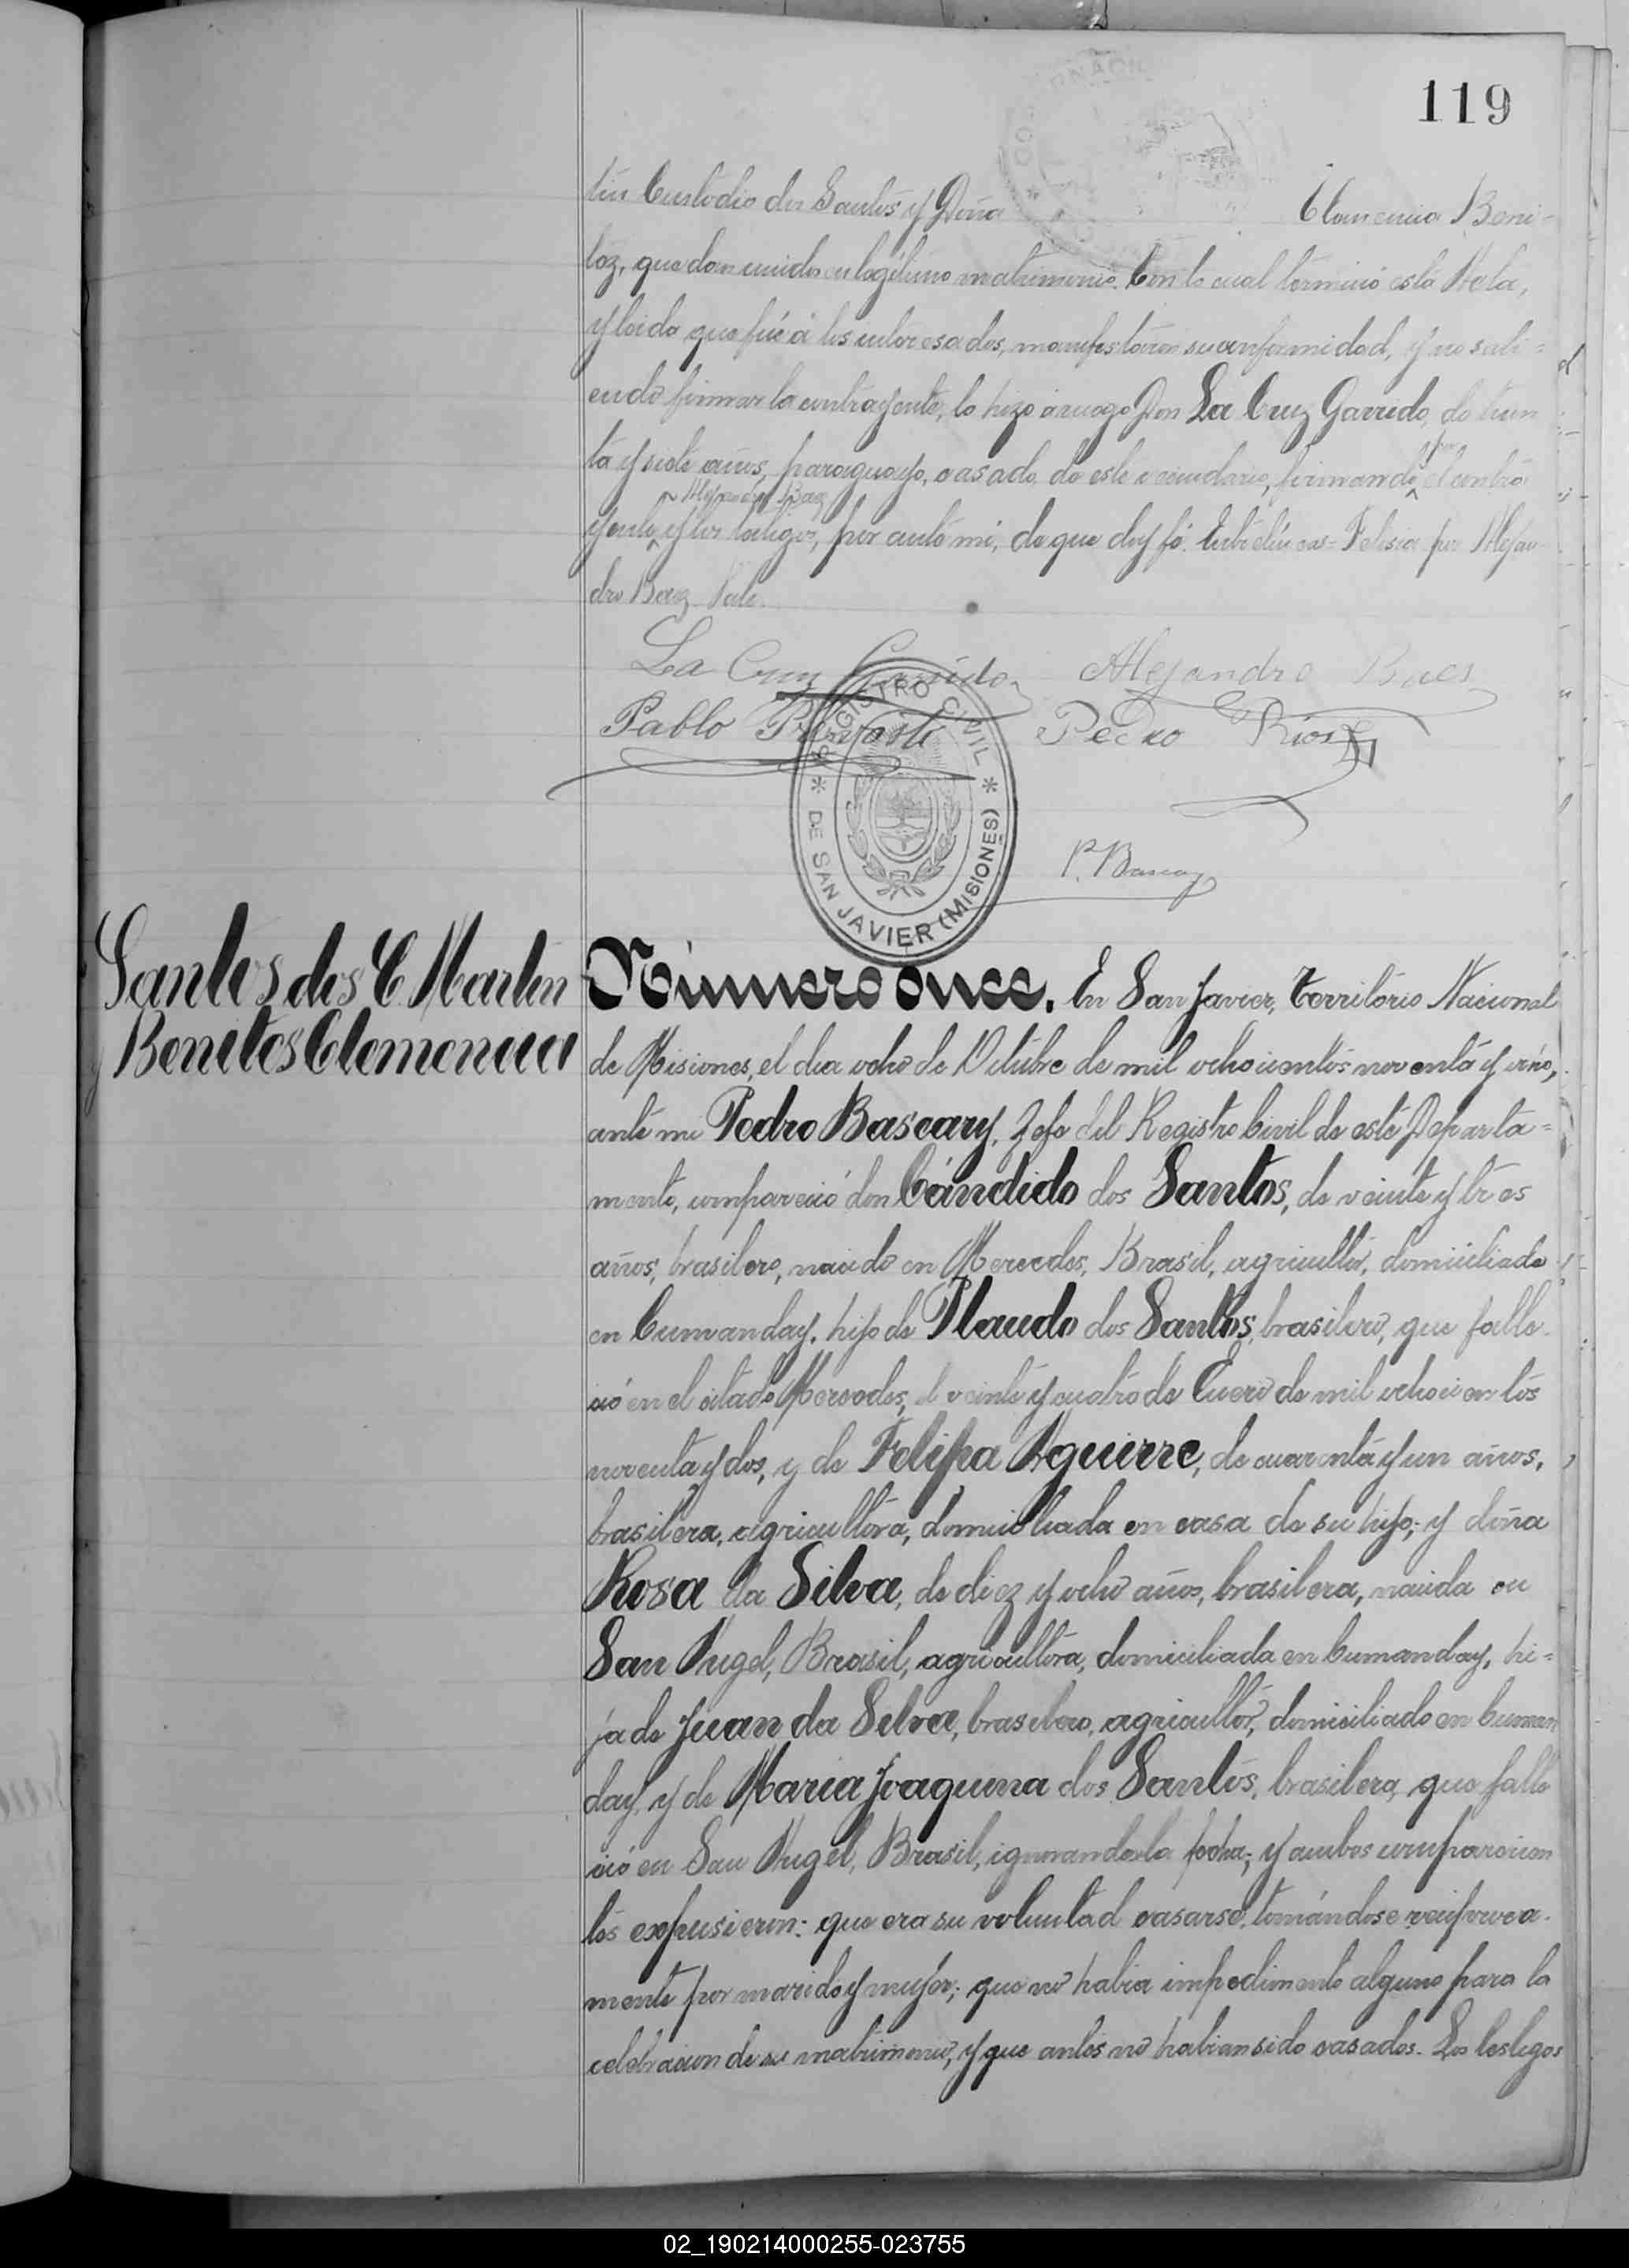 119
tin Custodio dos Santos y Doña Clemencia Beni-
tez, quedan unidos en legítimo matrimonio. Con lo cual terminó esta Acta,
y leida que fué á los interesados, manifestaron su conformidad, y no sabi=
endo firmar la contrayente, lo hizo á ruego Don La Cruz Garrido, de trein
ta y siete años, paraguayo, casado, de este vecindario, firmando por el contra
Alejandro Baez
yente y los testigos, por ante mi, de que doy fé. Entre líneas= Felisia por Alejan
dro Baez Vale.
La Cruz Garrido Alejandro Baes
Pablo Pedro Rios
REGISTRO CIVIL
* DE SAN JAVIER (MISIONES) *
P. Bascary
Santos dos C Martin
y Benites Clemencia
Número once. En San Javier, Territorio Nacional
de Misiones, el dia ocho de Octubre de mil ochocientos noventa y
ante mi Pedro Bascary, Jefe del Registro Civil de este Departa=
mento, compareció don Cándido dos Santos, de veinte y tres
años, brasilero, nacido en Mercedes, Brasil, agricultor, domiciliado
en Cumanday, hijo de Plaudo dos Santos, brasilero, que falle
ció en el citado Mercedes, el veinte y cuatro de Enero de mil ochocientos
noventa y dos, y de Felipa Aguirre, de cuarenta y un años,
brasilera, agricultora, domiciliada en casa de su hijo; y doña
Rosa da Silva, de diez y ocho años, brasilera, nacida en
San Angel, Brasil, agricultora, domiciliada en Cumanday, hi=
ja de Juan da Silva, brasilero, agricultor, domiciliado en Cuman
day, y de Maria Joaquina dos Santos, brasilera, que falle
ció en San Angel, Brasil, ignorandola fecha; y ambos comparecien
tes expusieron: que era su voluntad casarse, tomándose reciproca-
mente por marido y mujer; que no habia impedimento alguno para la
celebracion de su matrimonio, y que antes no habian sido casados. Los testigos
02_190214000255-023755